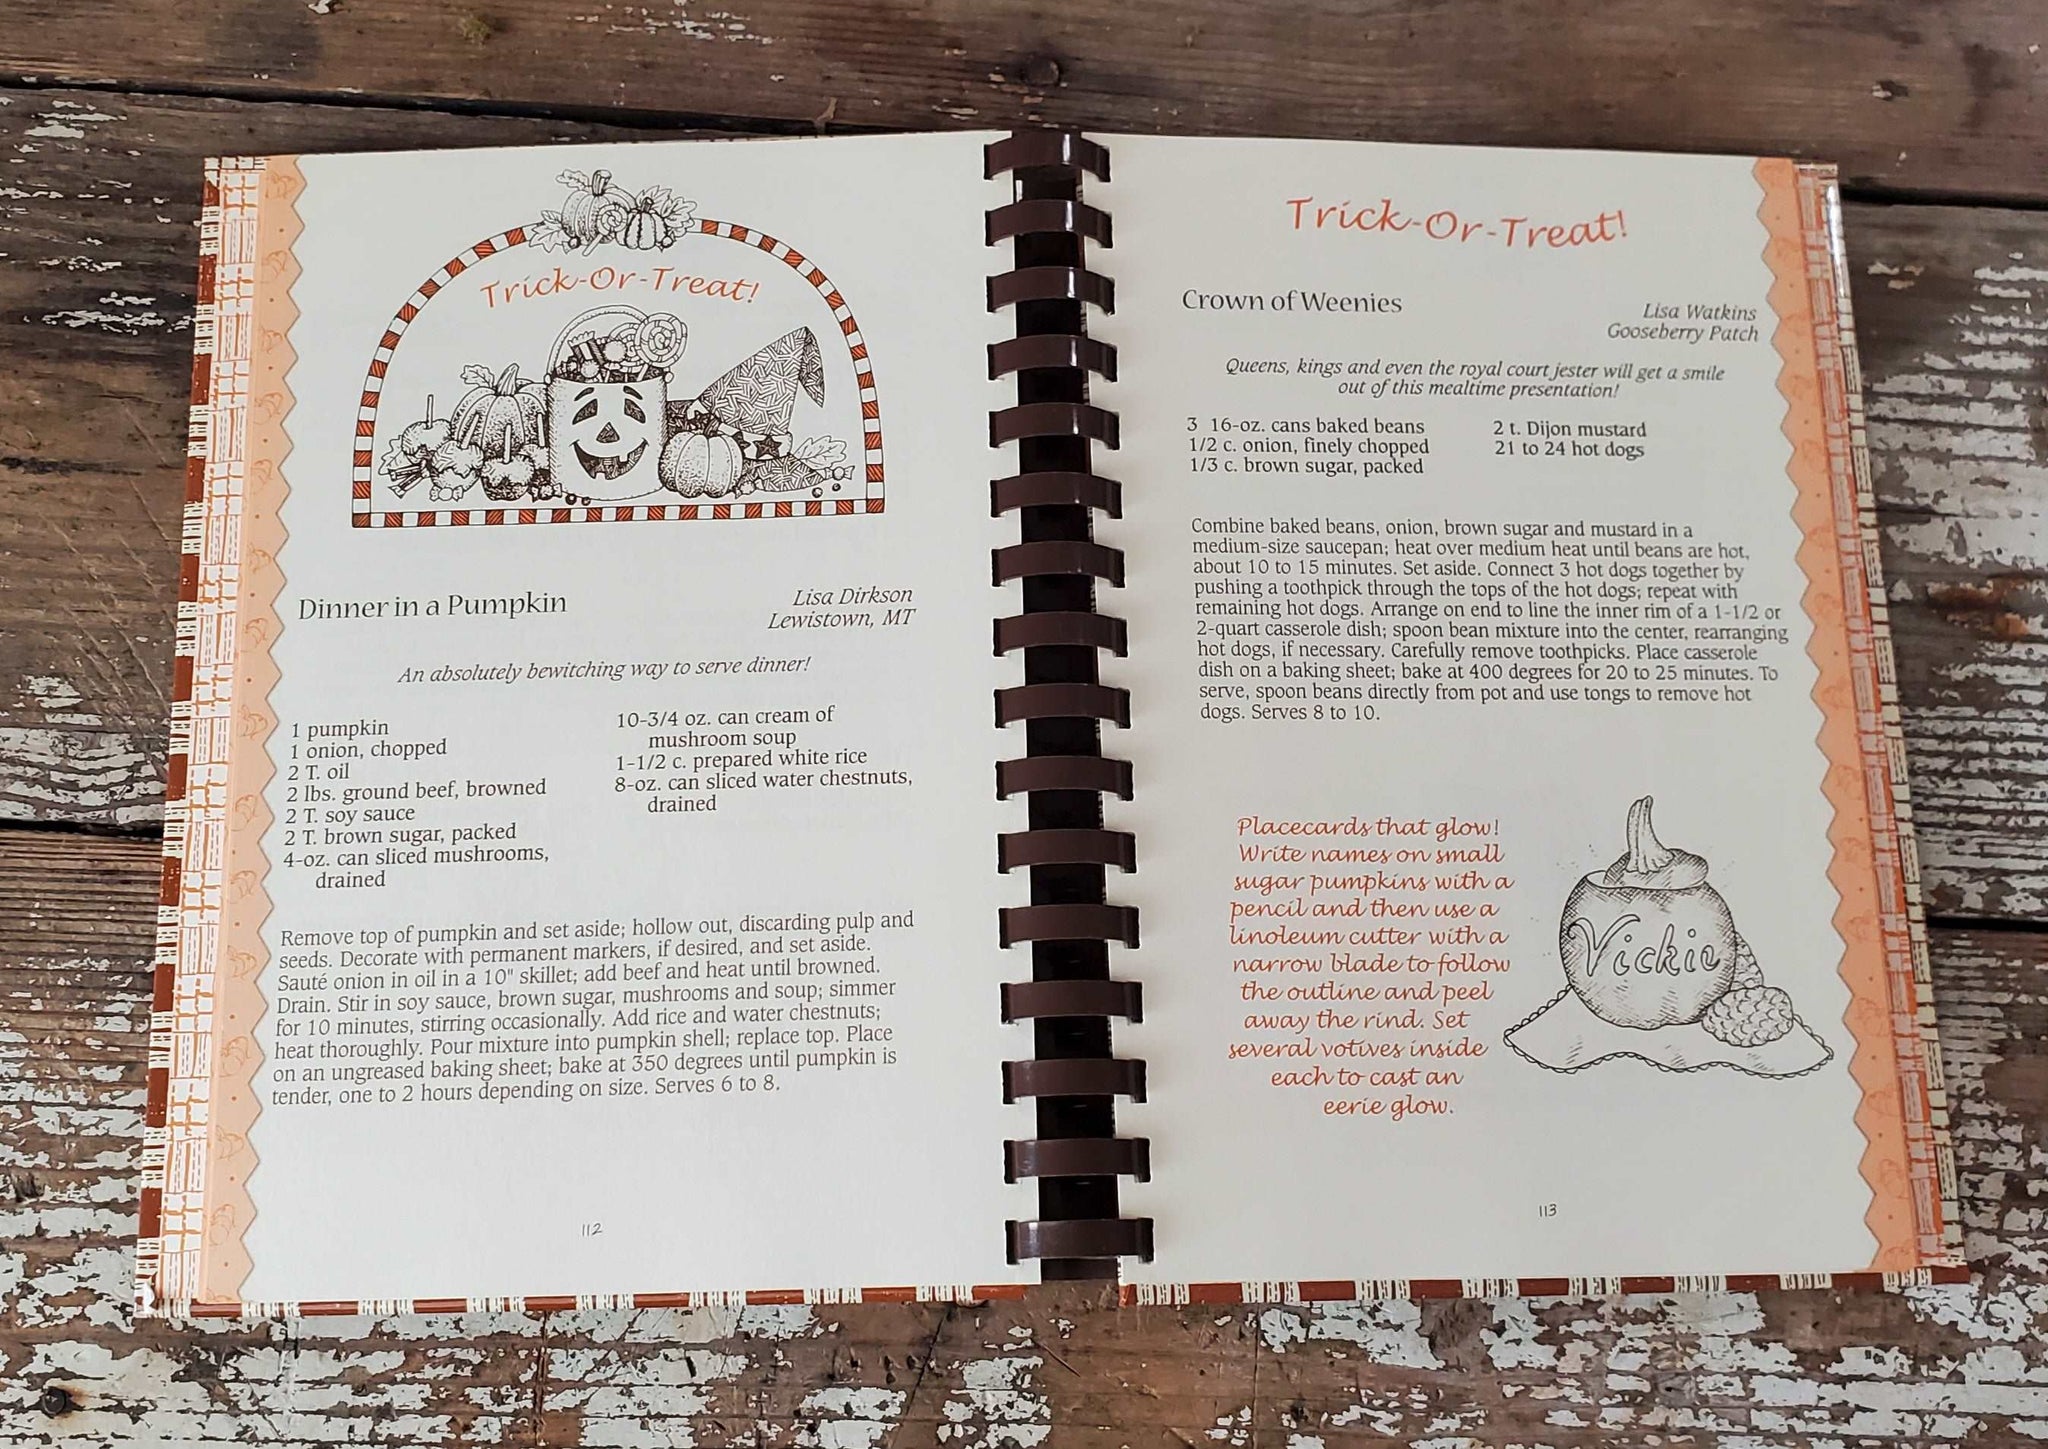 Trick-Or-Treat!
Dinner in a Pumpkin
Lisa Dirkson
Lewistown, MT
An absolutely bewitching way to serve dinner!
1 pumpkin
1 onion, chopped
2 T. oil
2 lbs. ground beef, browned
2 T. soy sauce
2 T. brown sugar, packed
4-oz. can sliced mushrooms,
drained
10-3/4 oz. can cream of
mushroom soup
1-1/2 c. prepared white rice
8-oz. can sliced water chestnuts,
drained
Remove top of pumpkin and set aside; hollow out, discarding pulp and
seeds. Decorate with permanent markers, if desired, and set aside.
Sauté onion in oil in a 10" skillet; add beef and heat until browned.
Drain. Stir in soy sauce, brown sugar, mushrooms and soup; simmer
for 10 minutes, stirring occasionally. Add rice and water chestnuts;
heat thoroughly. Pour mixture into pumpkin shell; replace top. Place
on an ungreased baking sheet; bake at 350 degrees until pumpkin is
tender, one to 2 hours depending on size. Serves 6 to 8.
112
Trick-Or-Treat!
Crown of Weenies
Lisa Watkins
Gooseberry Patch
Queens, kings and even the royal court jester will get a smile
out of this mealtime presentation!
3 16-oz. cans baked beans
1/2 c. onion, finely chopped
1/3 c. brown sugar, packed
2 t. Dijon mustard
21 to 24 hot dogs
Combine baked beans, onion, brown sugar and mustard in a
medium-size saucepan; heat over medium heat until beans are hot,
about 10 to 15 minutes. Set aside. Connect 3 hot dogs together by
pushing a toothpick through the tops of the hot dogs; repeat with
remaining hot dogs. Arrange on end to line the inner rim of a 1-1/2 or
2-quart casserole dish; spoon bean mixture into the center, rearranging
hot dogs, if necessary. Carefully remove toothpicks. Place casserole
dish on a baking sheet; bake at 400 degrees for 20 to 25 minutes. To
serve, spoon beans directly from pot and use tongs to remove hot
dogs. Serves 8 to 10.
Placecards that glow!
Write names on small
sugar pumpkins with a
pencil and then use a
linoleum cutter with a
narrow blade to follow
the outline and peel
away the rind. Set
several votives inside
each to cast an
eerie glow.
Vickie
113